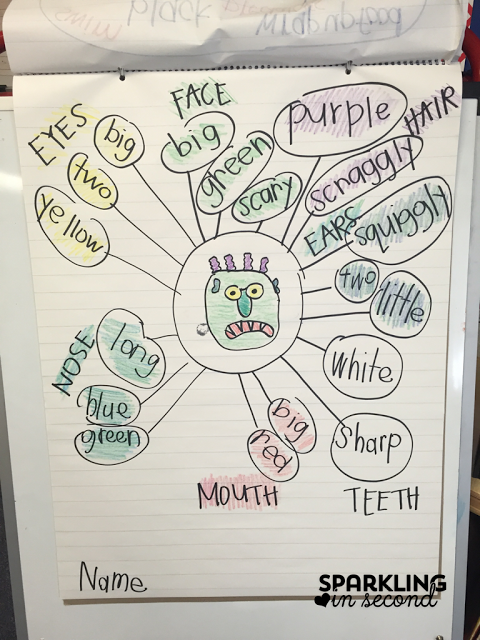 EYES
big
two
yellow
FACE
big
green
scary
HAIR
purple
scraggly
squiggly
EARS
two
little
NOSE
long
blue
green
MOUTH
big
red
TEETH
white
sharp
Name
SPARKLING
in second